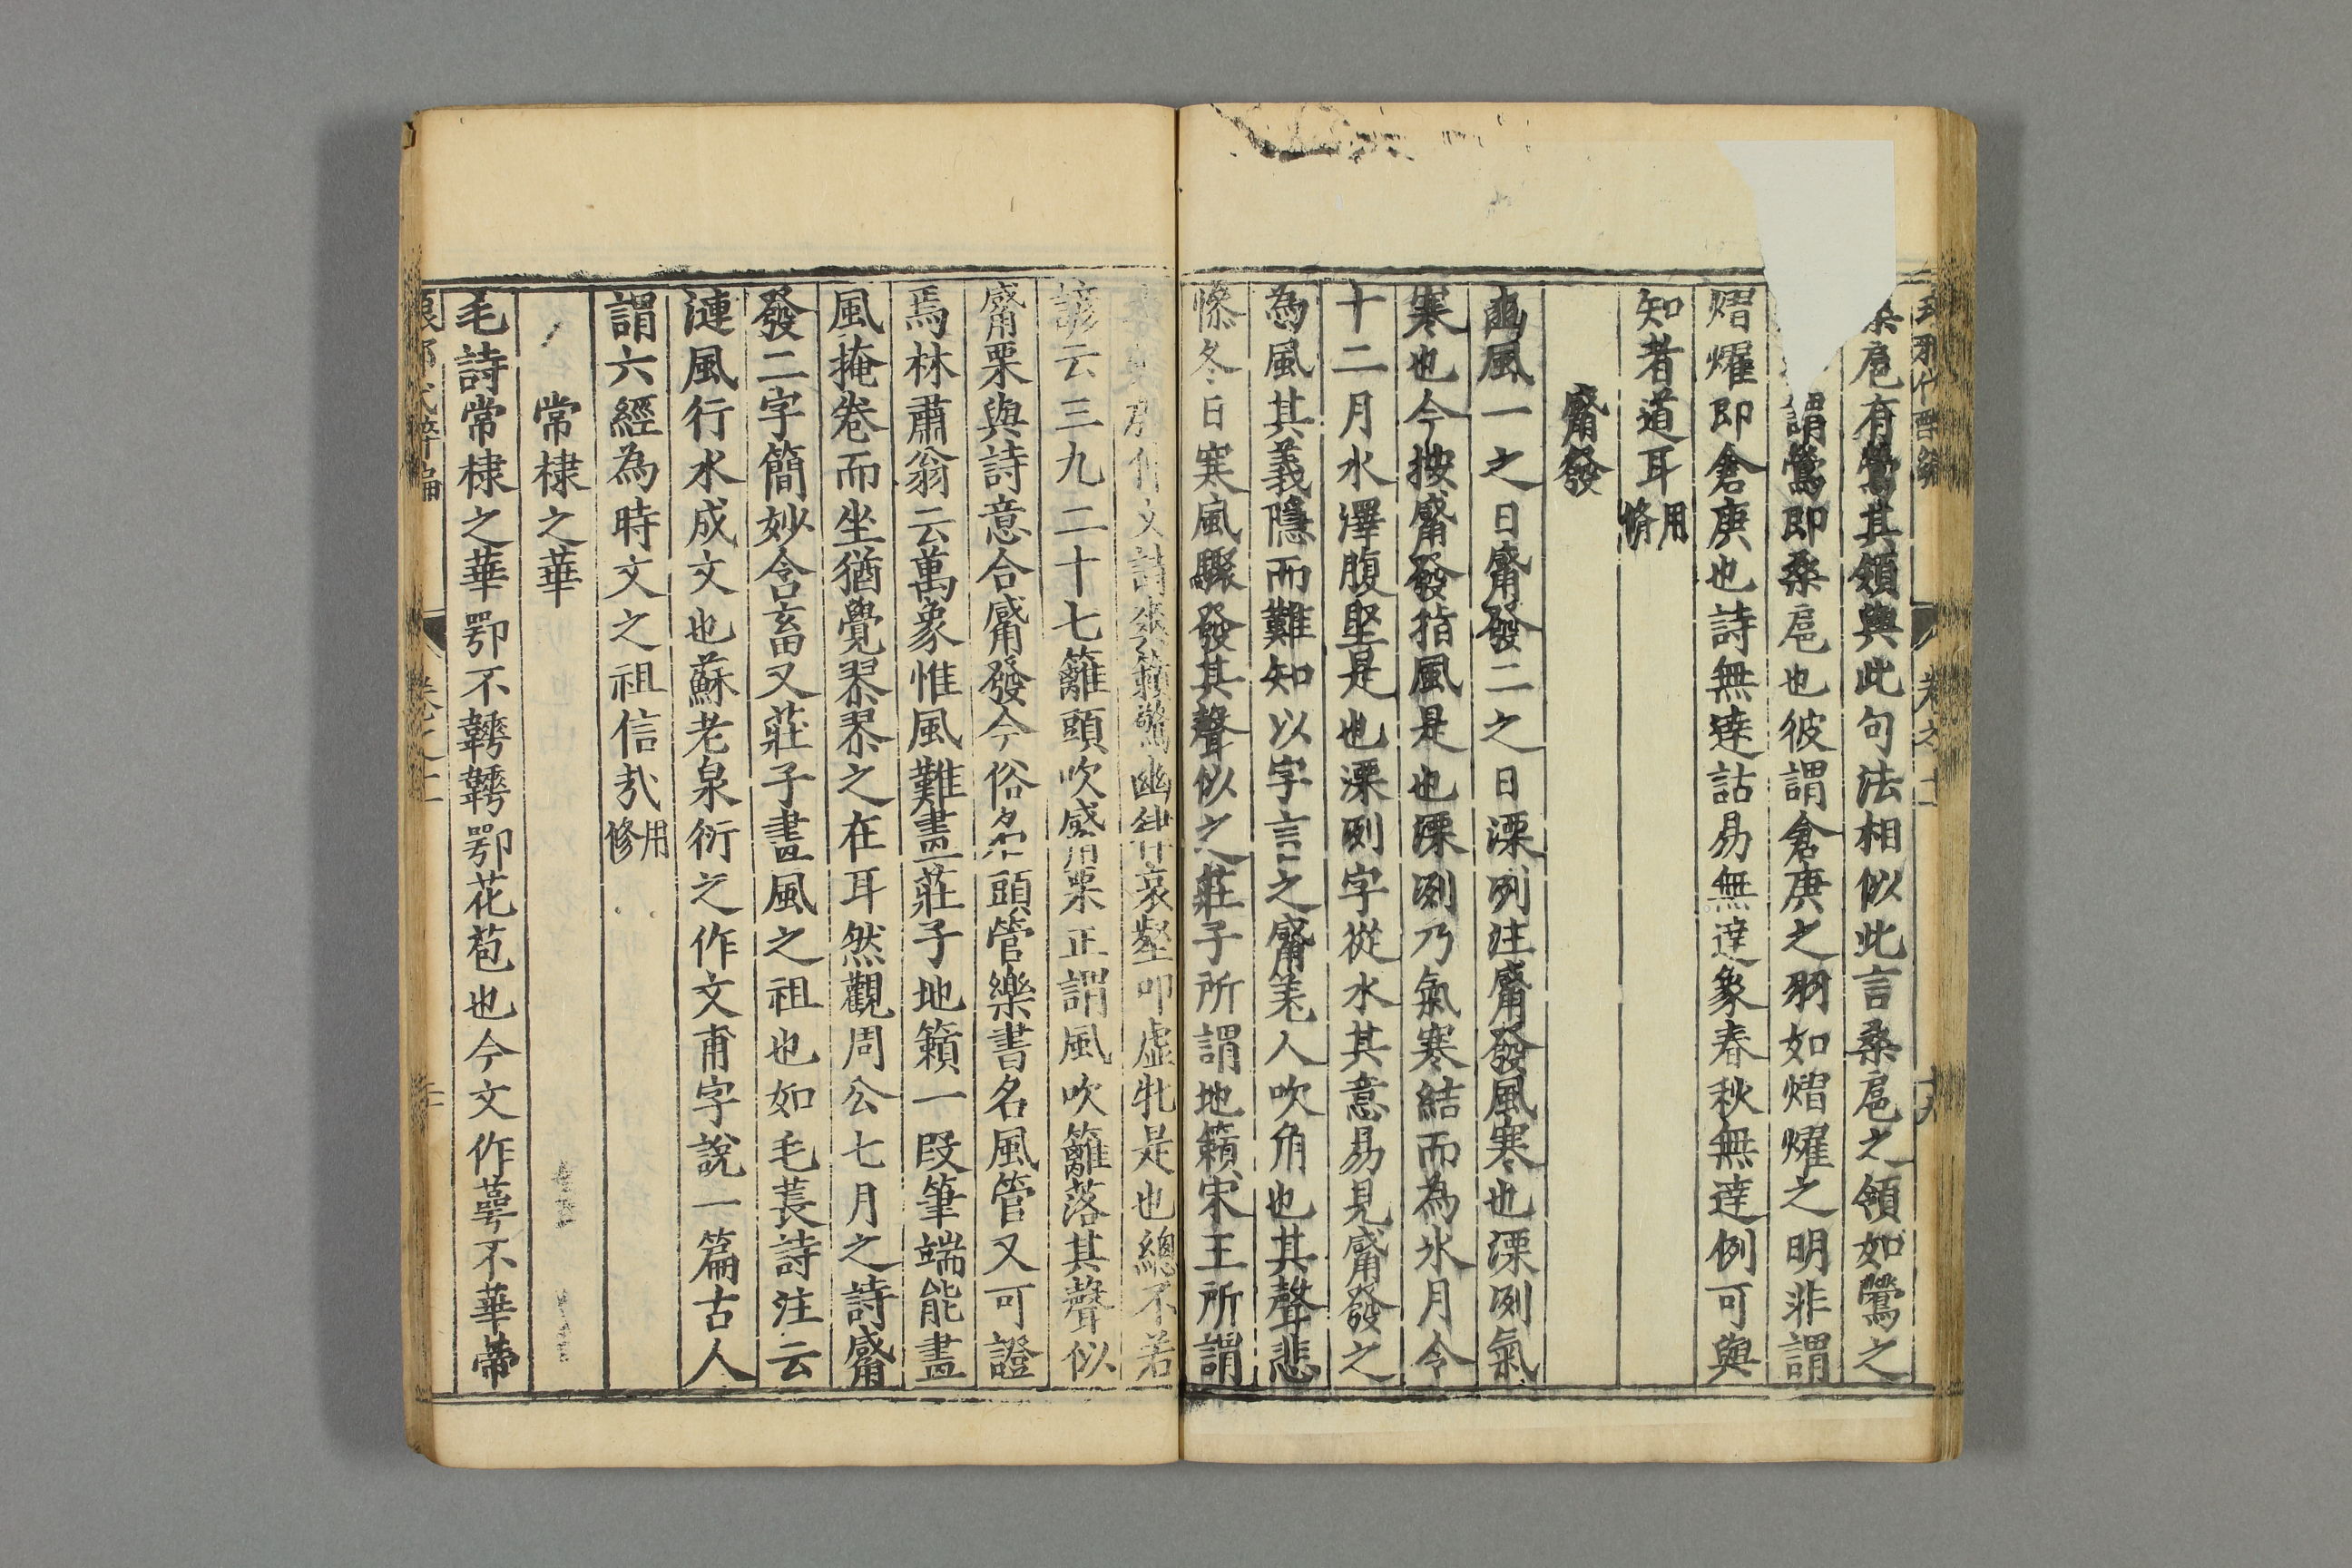 桑扈有鶯其領與此句法相似此言桑扈之領如鶯之
謂鶯即桑扈也彼謂倉庚之羽如熠燿之明非謂
熠燿即倉庚也詩無達詁易無達象春秋無達例可與
知者道耳用脩
觱發
豳風一之日觱發二之日溧冽注觱發風寒也溧冽氣
寒也今按觱發指風是也溧冽乃氣寒結而為氷月令
十二月水澤腹堅是也溧冽字從水其意易見觱發之
為風其義隱而難知以字言之觱羌人吹角也其聲悲
慘冬日寒風驟發其聲似之莊子所謂地籟宋玉所謂
籟驚幽律哀壑叩虛牝是也總不若
諺云三九二十七籬頭吹觱栗正謂風吹籬落其聲似
觱栗與詩意合觱發今俗名頭管樂書名風管又可證
焉林肅翁云萬象惟風難畫莊子地籟一段筆端能畫
風掩卷而坐猶覺翏翏之在耳然觀周公七月之詩觱
發二字簡妙含畜又莊子畫風之祖也如毛萇詩注云
漣風行水成文也蘇老泉衍之作文甫字說一篇古人
謂六經為時文之祖信哉用修
常棣之華
毛詩常棣之華鄂不韡韡鄂花苞也今文作萼不華蒂